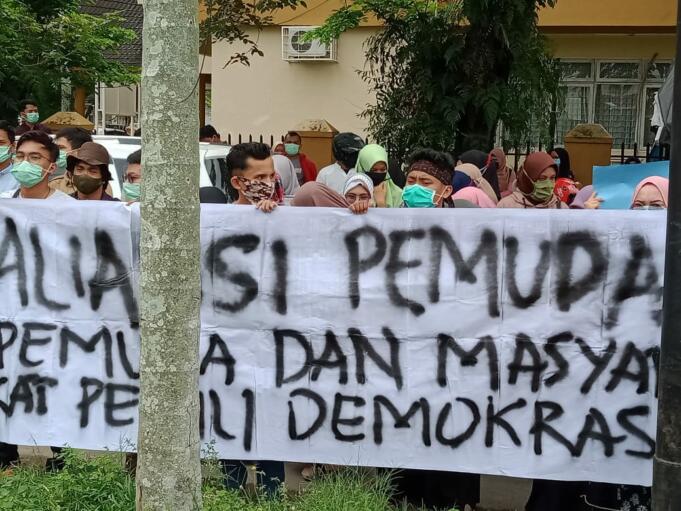 ALIANSI PEMUDA
PEMUDA DAN MASYA
KAT PEDULI DEMOKRASI